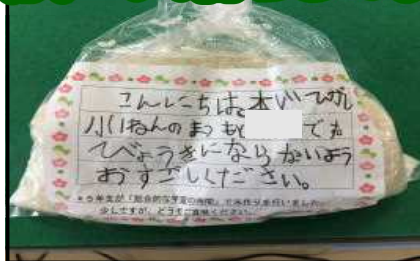 こんにちは。本川ひがし
小1ねんのまつもと です
てびょうきにならないよう
おすごしください。
*5年生が「総合的な学習の時間」で米作りを行いました。
少しですが、どうぞご賞味ください。